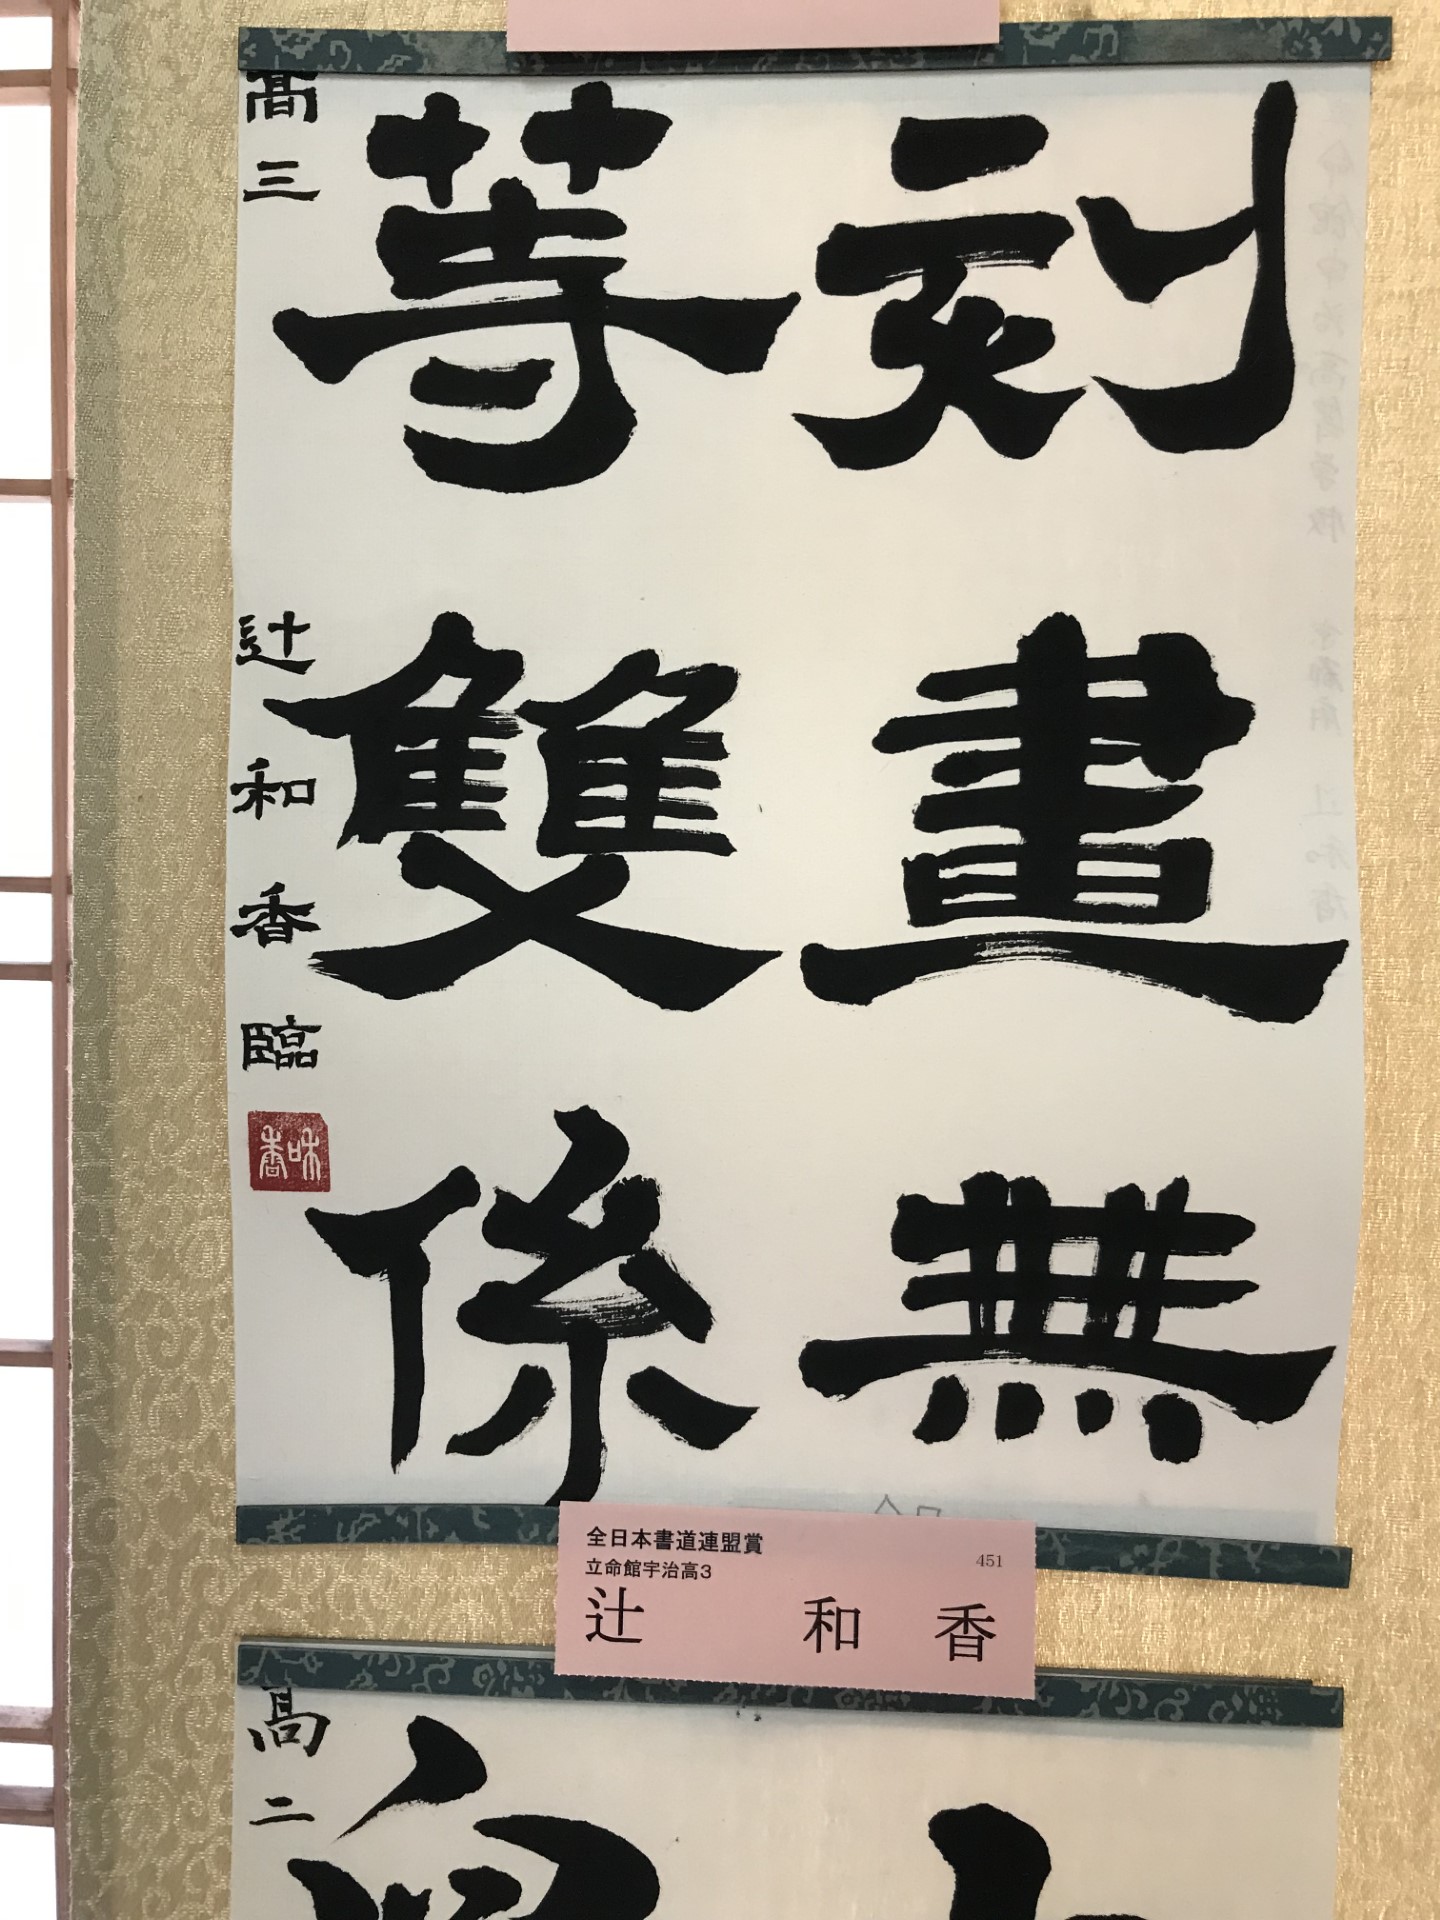 刻畫無
等雙係
髙三 辻和香臨
和香
全日本書道連盟賞
立命館宇治高3 451
辻 和香
髙二